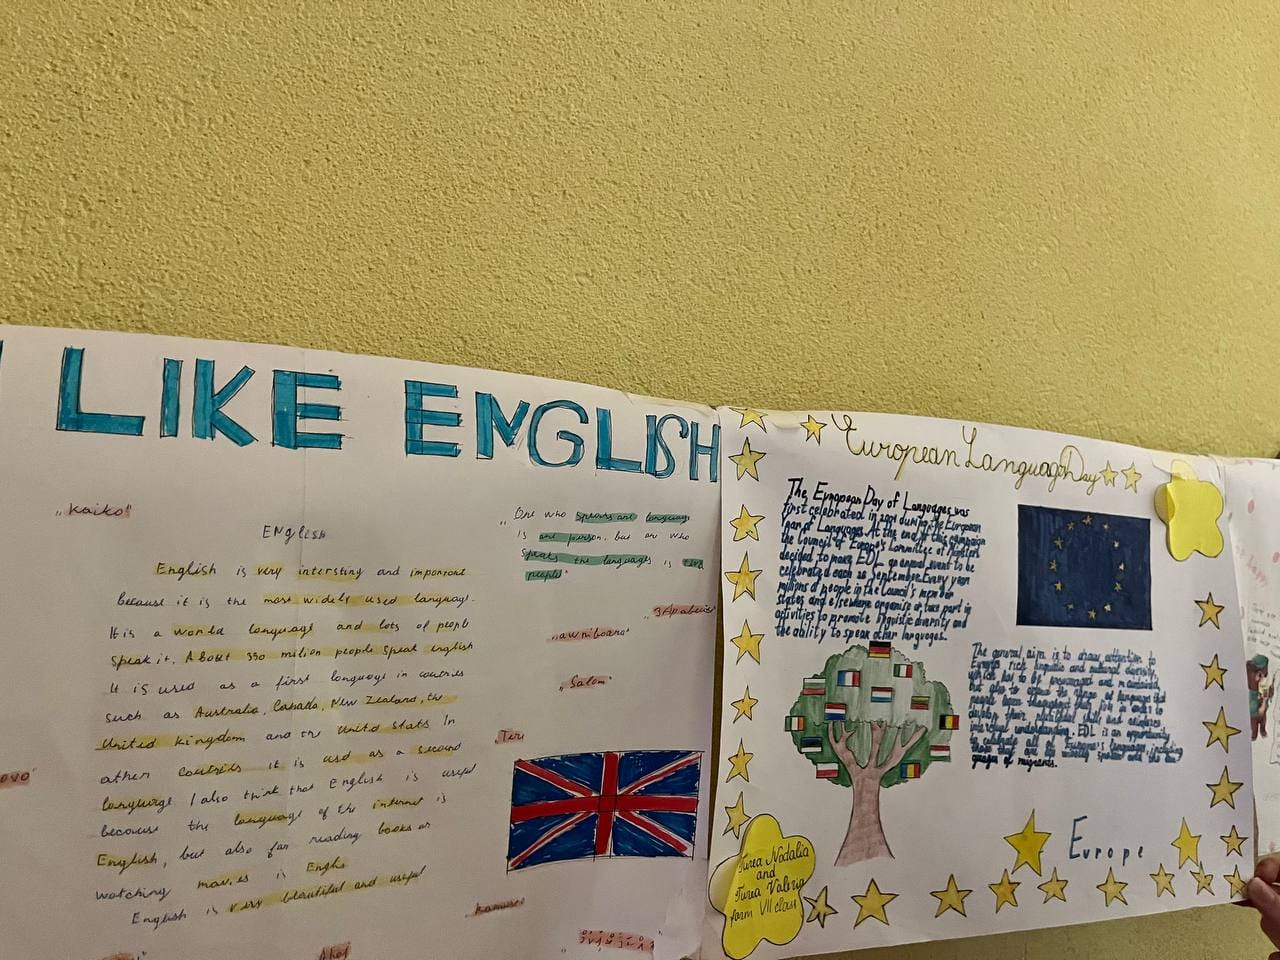 LIKE ENGLISH
„kaiko"
English
English is very intersting and important
because it is the most widely used language.
It is a world language and lots of people
speak it. About 330 milion people speak english
It is used as a first language in coutries
such as Australia, Canada, New Zealand, the
United Kingdom and the United Stats. In
other coutries it is used as a second
language. I also think that English is useful
because the language of the internet is
English, but also for reading books or
watching movies is
English is very beautiful and useful
„One who speaks one language
is one person, but one who
speak two languages is two
people"
„awniboano"
„Salom"
Teri
Ahoj
European Language Day
The European Day of Languages was
first celebrated in 2001 during the European
Year of Languages. At the end of this campaign
the Council of Europe's Committee of Ministers
decided to make EDL an annual event to be
celebrated each 26 September. Every year
millions of people in the Council's member
states and elsewhere organise or take part in
activities to promote linguistic diversity and
the ability to speak other languages.
The general aim is to draw attention to
Europe's rich linguistic and cultural diversity,
which has to be encouraged and maintained,
but also to the range of languages that
people learn throughout their in order to
develop their skills and
understanding. EDL is an opportunity
to celebrate all of Europe's languages, including
those that are less widely spoken and the lan-
guages of migrants.
Europe
Turea Nadalia
and
Turea Valeria
form VII class